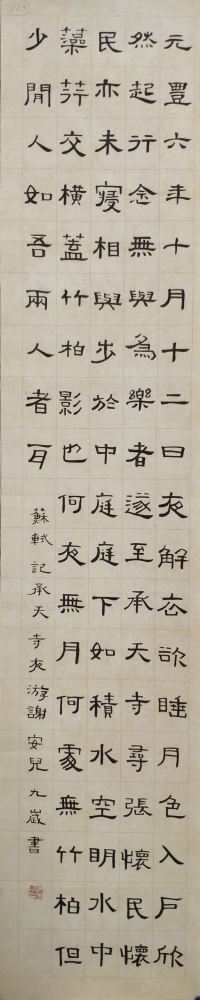 元豐六年十月十二日夜解衣欲睡月色入戶欣
然起行念無與為樂者遂至承天寺尋張懷民懷
民亦未寢相與步於中庭庭下如積水空明水中
藻荇交橫蓋竹柏影也何夜無月何處無竹柏但
少閒人如吾兩人者耳
蘇軾記承天寺夜游謝安兒九歲書